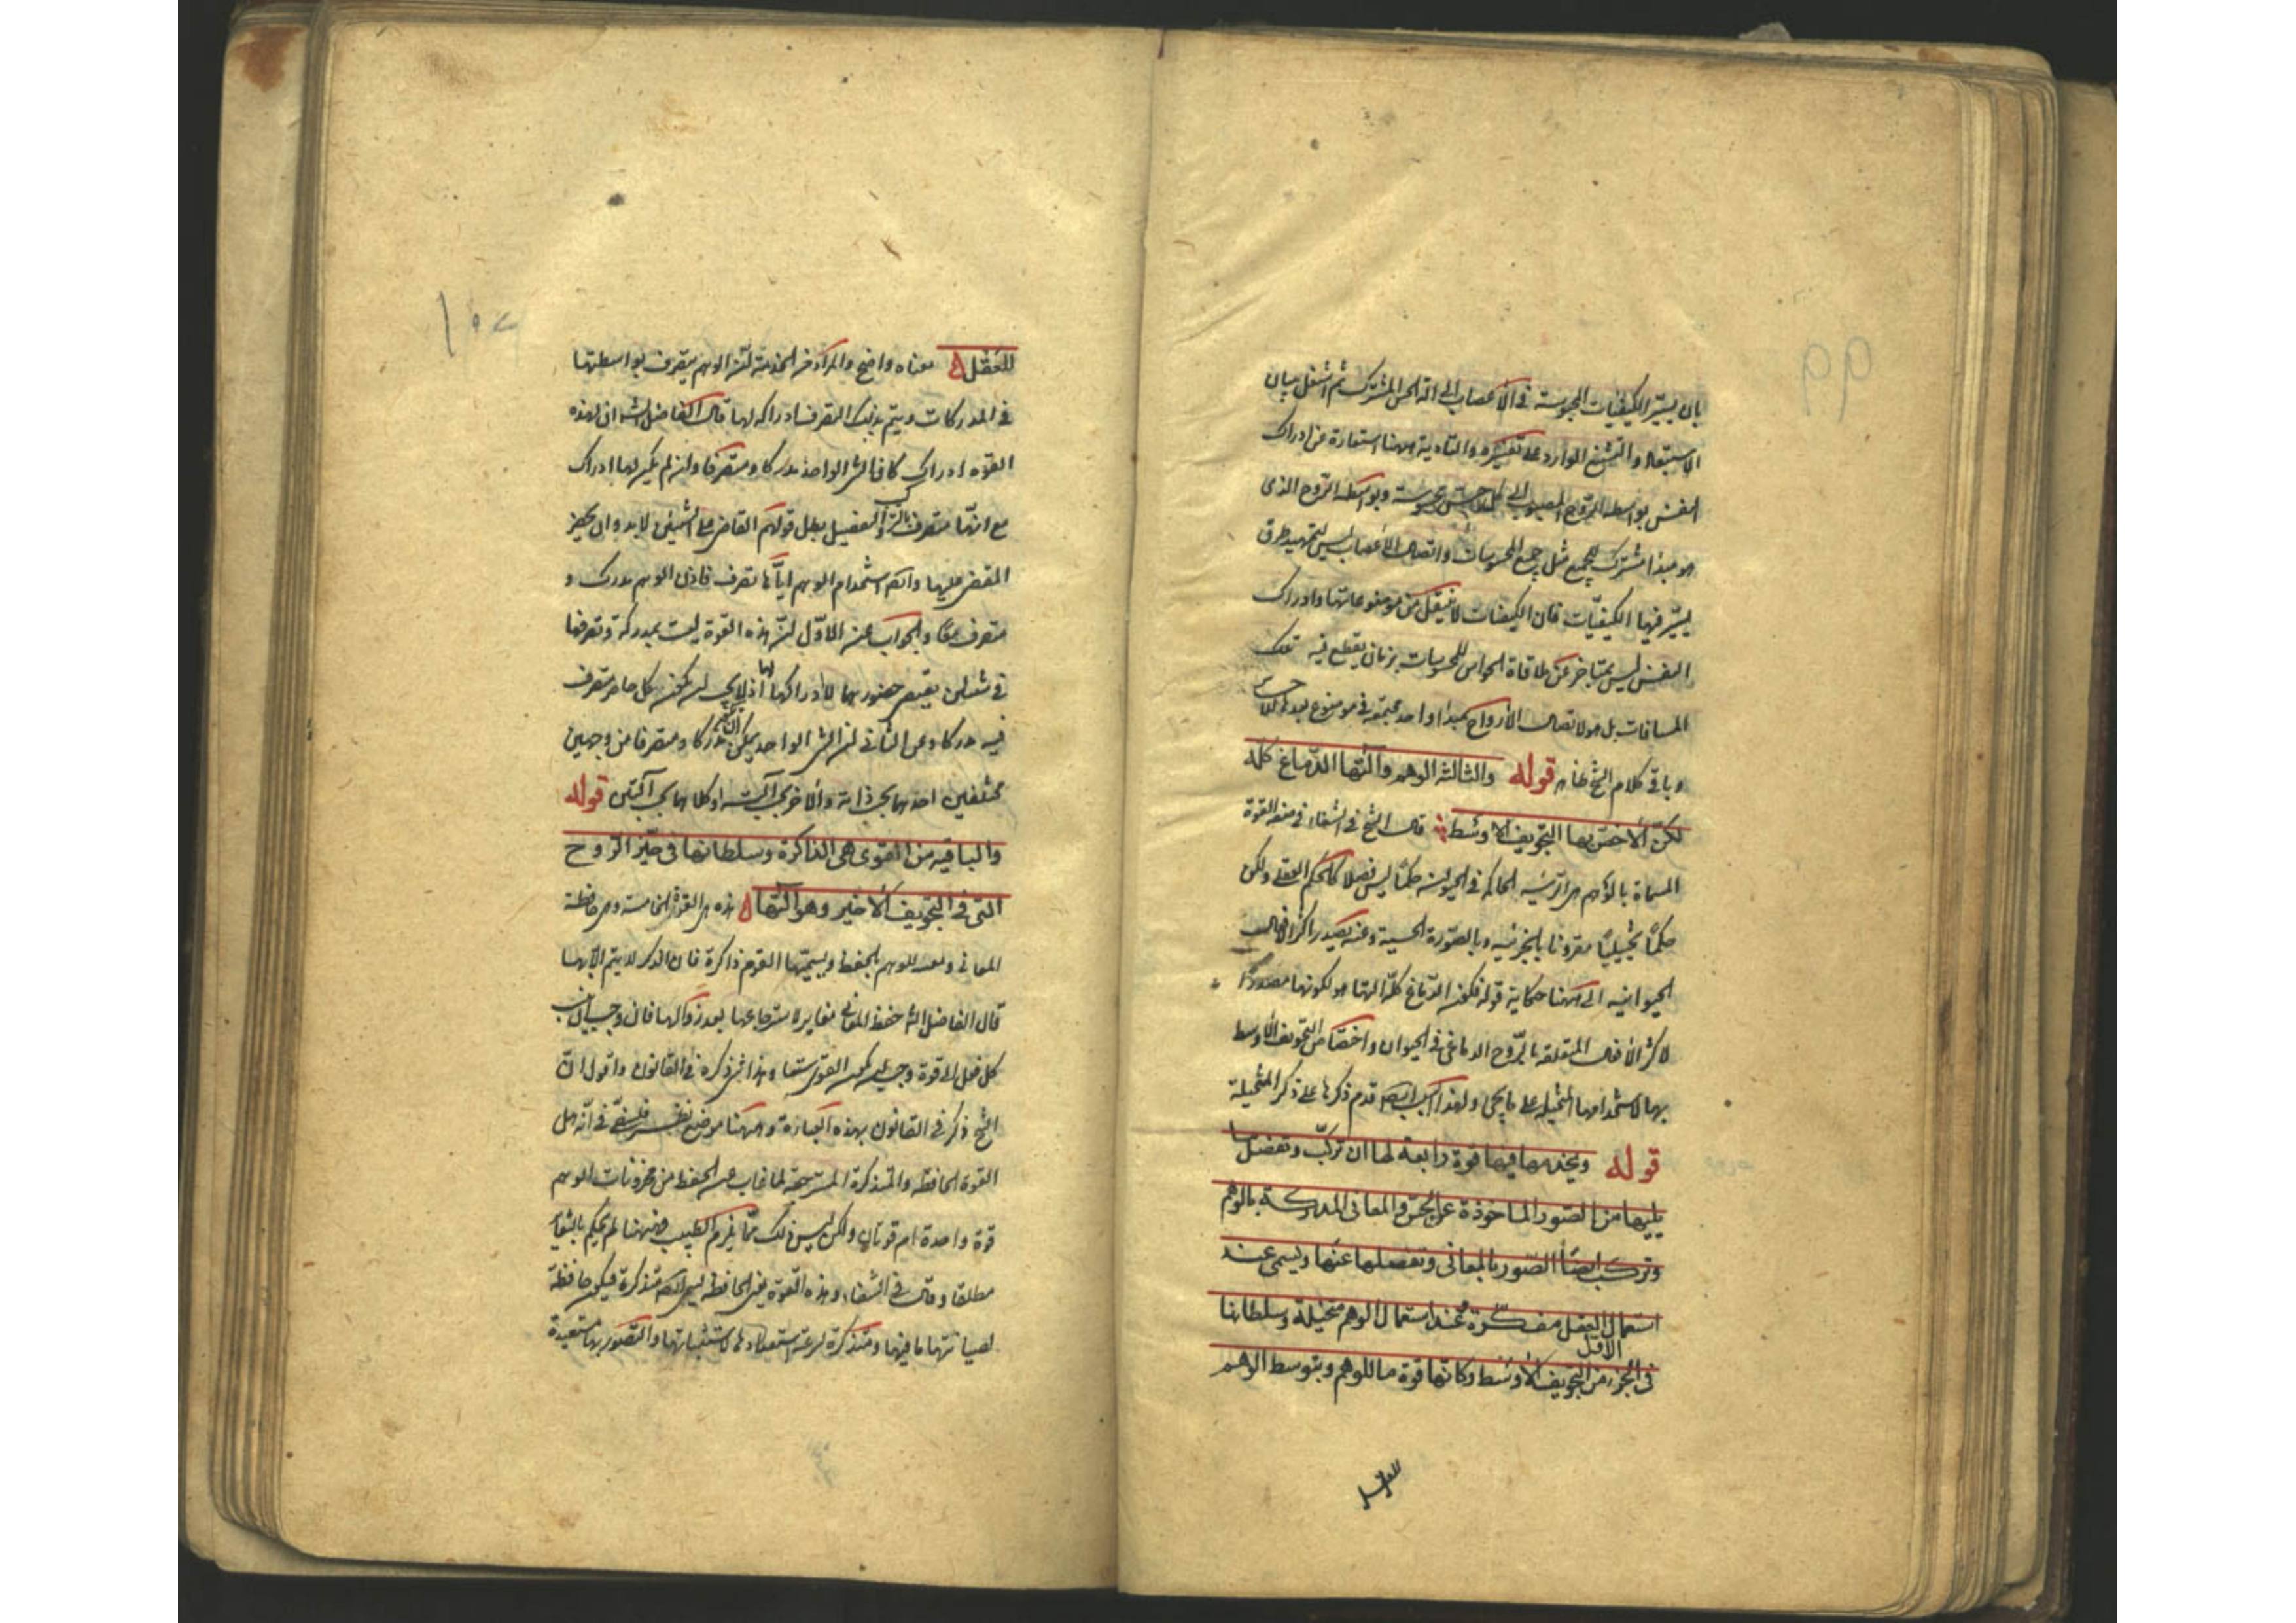 ٩٩
بان يسير الكيفيات المحسوسة في الأعصاب الى آلة الحس المشترك ثم اشتغل ببيان
الاستبعاد والتشنيع الوارد على تفسيره والتأدية ههنا استعارة عن ادراك
النفس بواسطة الروح المصبوب الى كل حس محسوسه وبواسطة الروح الذى
هو مبدأ مشترك للجميع مثل جميع المحسوسات واتصال الأعصاب ليس لتمهيد طرق
يسير فيها الكيفيّات فان الكيفيات لا تنتقل عن موضوعاتها وادراك
النفس ليس بمتأخر عن ملاقاة الحواس للمحسوسات بزمان يقطع فيه تلك
المسافات بل هو لاتصال الأرواح بمبدأ واحد مجتمعة في موضوع
وباقى كلام الشيخ ظاهر قوله والثالثة الوهم وآلتها الدّماغ كلّه
لكنّ الأخصّ بها التجويف الأوسط قال الشيخ في الشفاء في هذه القوة
المسماة بالوهم هى الرئيسة الحاكمة في الحيوان حكمًا ليس فصلا كالحكم العقلى ولكن
حكمًا تخييليًا مقرونا بالجزئية وبالصّورة الحسية وعنه يصدر اكثر الأفعال
الحيوانية الى ههنا حكاية قوله فكون الدّماغ كلّه آلتها هو لكونها مصدرًا
لاكثر الأفعال المتعلقة بالرّوح الدماغى في الحيوان واختصاص التجويف الأوسط
بها لاستخدامها المتخيلة على ما يجئ ولهذا السبب ايضا قدم ذكرها على ذكر المتخيلة
قوله ويخدمها فيها قوة رابعة لها ان تركّب وتفصل ما
يليها من الصّور المأخوذة عن الحسّ والمعانى المدركة بالوهم
وتركب ايضًا الصّور بالمعانى وتفصلها عنها وتسمى عند
استعمال العقل مفكّرة وعند استعمال الوهم متخيلة وسلطانها
في الجزء الاول من التجويف الأوسط وكأنّها قوة ما للوهم وبتوسط الوهم
للعقل
١٠٠
للعقل معناه واضح والمراد من الخدمة انّ الوهم يتصرف بواسطتها
في المدركات ويتم بذلك التصرف ادراكه لها قال الفاضل الشارح ان لهذه
القوة ادراك كان الشئ الواحد مدركا ومتصرفا وان لم يكن لها ادراك
مع انّها متصرفة بالتركيب والتفصيل بطل قولهم القاضى على الشيئين لا بد وان يحضره
المقضى عليهما وايضا استخدام الوهم ايّاها تصرف فاذن الوهم مدرك و
متصرف معًا والجواب عن الأوّل انّ هذه القوة ليست بمدركة وتصرفها
في شيئين يقتضى حضورهما لا ادراكهما لها اذ لا يجب ان يكون كل حاضر متصرف
فيه مدركا وعن الثانى انّ الشئ الواحد يمكن ان يكون مدركا ومتصرفا من وجهين
مختلفين احدهما بحسب ذاته والاخر بحسب آلته او كلاهما بحسب آلتين قوله
والباقية من القوى هى الذاكرة وسلطانها فى حيّز الروح
التى فى التجويف الأخير وهو آلتها هذه هى القوة الخامسة وهى حافظة
المعانى ومعدة للوهم بالحفظ ويسمّيها القوم ذاكرة فان الذكر لا يتم الّا بها
قال الفاضل الشارح حفظ المعانى مغاير لاسترجاعها بعد زوالها فان وجب ان ينسب
كل فعل الى قوة وجب ان يكون القوى ستّا وهذا شئ ذكره في القانون واقول انّ
الشيخ ذكر في القانون بهذه العبارة وههنا موضع نظر فلسفىّ في انّه هل
القوة الحافظة والمتذكرة المسترجعة لما غاب عن الحفظ من مخزونات الوهم
قوة واحدة ام قوتان ولكن ليس ذلك ممّا يلزم الطبيب فههنا لم يحكم بالتغاير
مطلقا وقال في الشفاء وهذه القوة يعنى الحافظة تسمى ايضا متذكرة فيكون حافظة
لصيانتها ما فيها ومتذكرة لسرعة استعدادها لاستثباتها والتصوّر بها مستعيدة